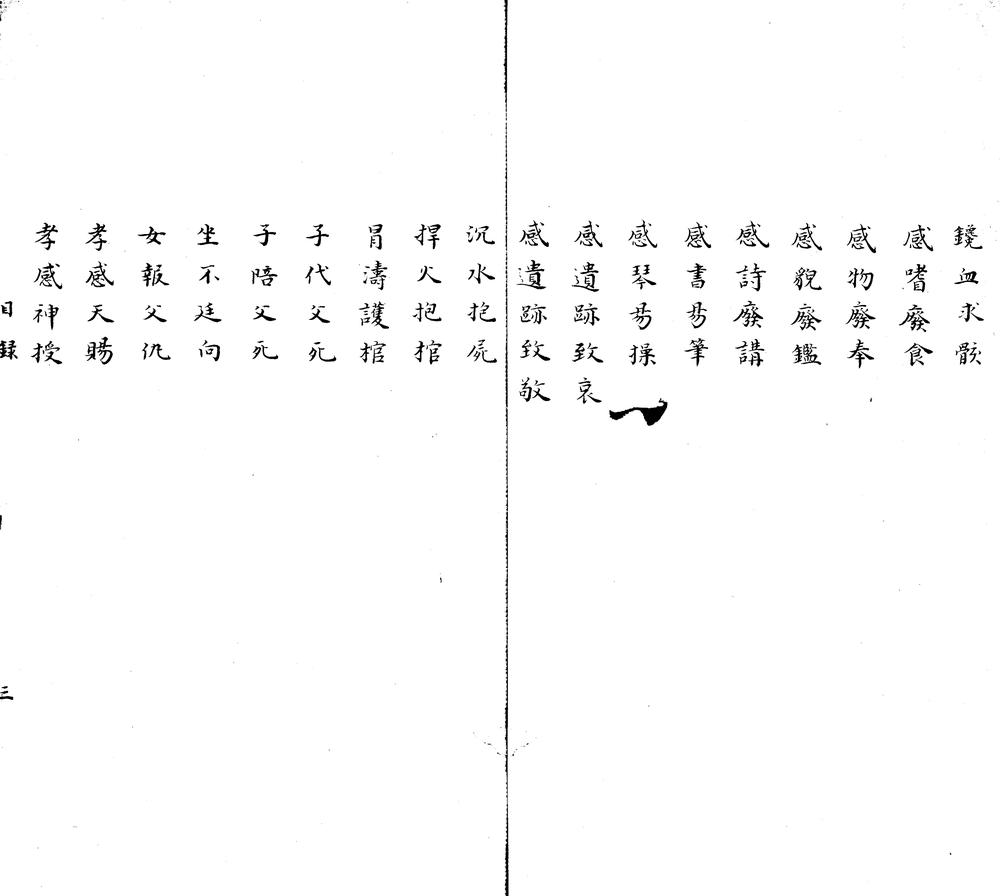 鑱血求骸
感嗜廢食
感物廢奉
感貌廢鑑
感詩廢講
感書易筆
感琴易操
感遺跡致哀
感遺跡致敬
沉水抱屍
捍火抱棺
冒濤護棺
子代父死
子陪父死
坐不廷向
女報父仇
孝感天賜
孝感神授
目錄
三